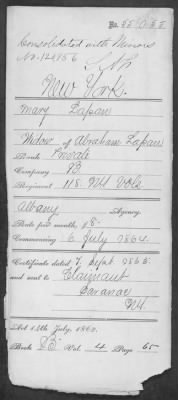 No. 85033
Consolidated with Minors
No. 124956
New York.
Mary Lapan
Widow of Abraham Lapan
Rank Private
Company B
Regiment 118. NY Vols
Albany Agency.
Rate per month, $8.
Commencing 6 July 1864.
Certificate dated 7. Sept 1866.
and sent to Claimant
Saranac
NY.
Act 14th July, 1862.
Book B Vol. 4 Page 65